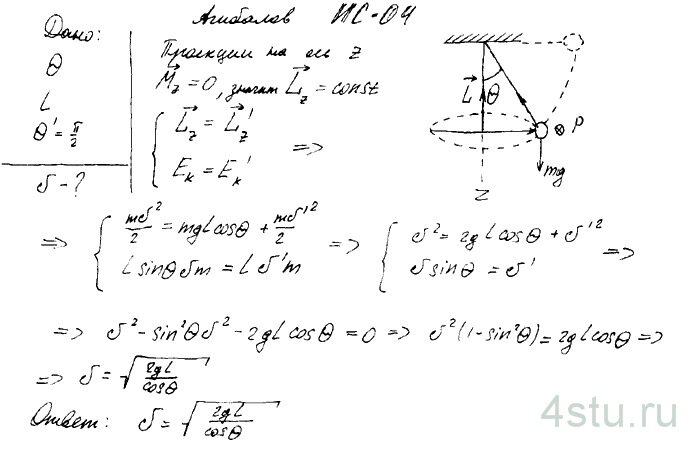 Агибалов ИС-04
Дано:
θ
L
θ' = π/2
υ - ?
Проекции на ось z
M⃗z = 0, значит L⃗z = const
{ L⃗z = L⃗z'
{ Eк = Eк' =>
L⃗ θ P
mg
z
=> { mυ²/2 = mgLcosθ + mυ'²/2
{ Lsinθυm = Lυ'm
=> { υ² = 2gLcosθ + υ'²
{ υsinθ = υ' =>
=> υ² - sin²θυ² - 2gLcosθ = 0 => υ²(1-sin²θ) = 2gLcosθ =>
=> υ = √(2gL/cosθ)
Ответ: υ = √(2gL/cosθ)
4stu.ru